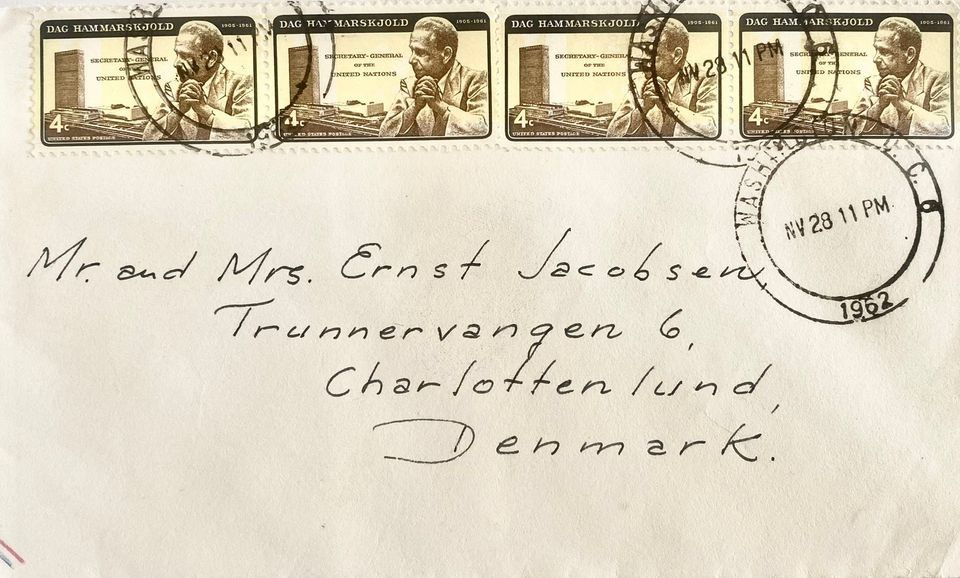 DAG HAMMARSKJOLD 1905-1961
SECRETARY-GENERAL
OF THE
UNITED NATIONS
4c
UNITED STATES POSTAGE
DAG HAMMARSKJOLD 1905-1961
SECRETARY-GENERAL
OF THE
UNITED NATIONS
4c
UNITED STATES POSTAGE
DAG HAMMARSKJOLD 1905-1961
SECRETARY-GENERAL
OF THE
UNITED NATIONS
4c
UNITED STATES POSTAGE
DAG HAMMARSKJOLD 1905-1961
SECRETARY-GENERAL
OF THE
UNITED NATIONS
4c
UNITED STATES POSTAGE
NV 28 11 PM
WASHINGTON, D.C. 6
NV 28 11 PM
1962
Mr. and Mrs. Ernst Jacobsen,
Trunnervangen 6,
Charlottenlund,
Denmark.